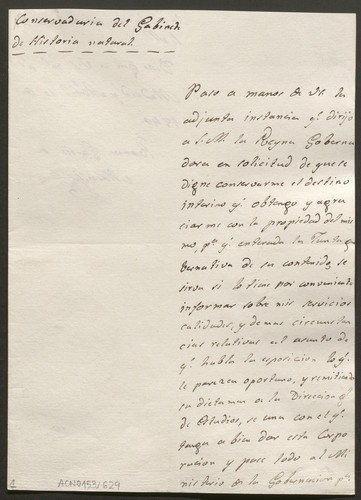 Conservaduria del Gabinete
de Historia natural.
Paso a manos de V. la
adjunta instancia q.e dirijo
a S. M. la Reyna Goberna
dora en solicitud de que se
digne conservarme el destino
interino q.e obtengo y agra
ciarme con la propiedad del mis
mo, p.a q.e enterada la Junta gu
bernativa de su contenido, se
sirva si lo tiene por conveniente
informar sobre mis servicios
calidades, y demas circunstan
cias relativas al asunto de
q.e habla la esposicion lo q.e
le parezca oportuno, y remitiendo
su dictamen a la Direccion g.l
de Estudios, se una con el q.e
tenga a bien dar esta Corpo
racion y pase todo al Mi
nisterio de la Gobernacion p.a
ACN0153/629